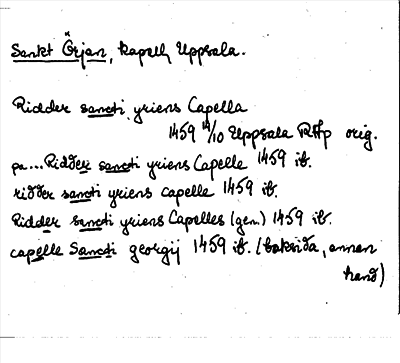 Sankt Örjan, kapell, Uppsala.
Ridder sancti yriens Capella
1459 14/10 Uppsala RAp orig.
pa...Ridder sancti yriens Capelle 1459 ib.
ridder sancti yriens capelle 1459 ib.
Ridder sancti yriens Capelles (gen.) 1459 ib.
capelle Sancti georgij 1459 ib. (baksida, annan
hand)